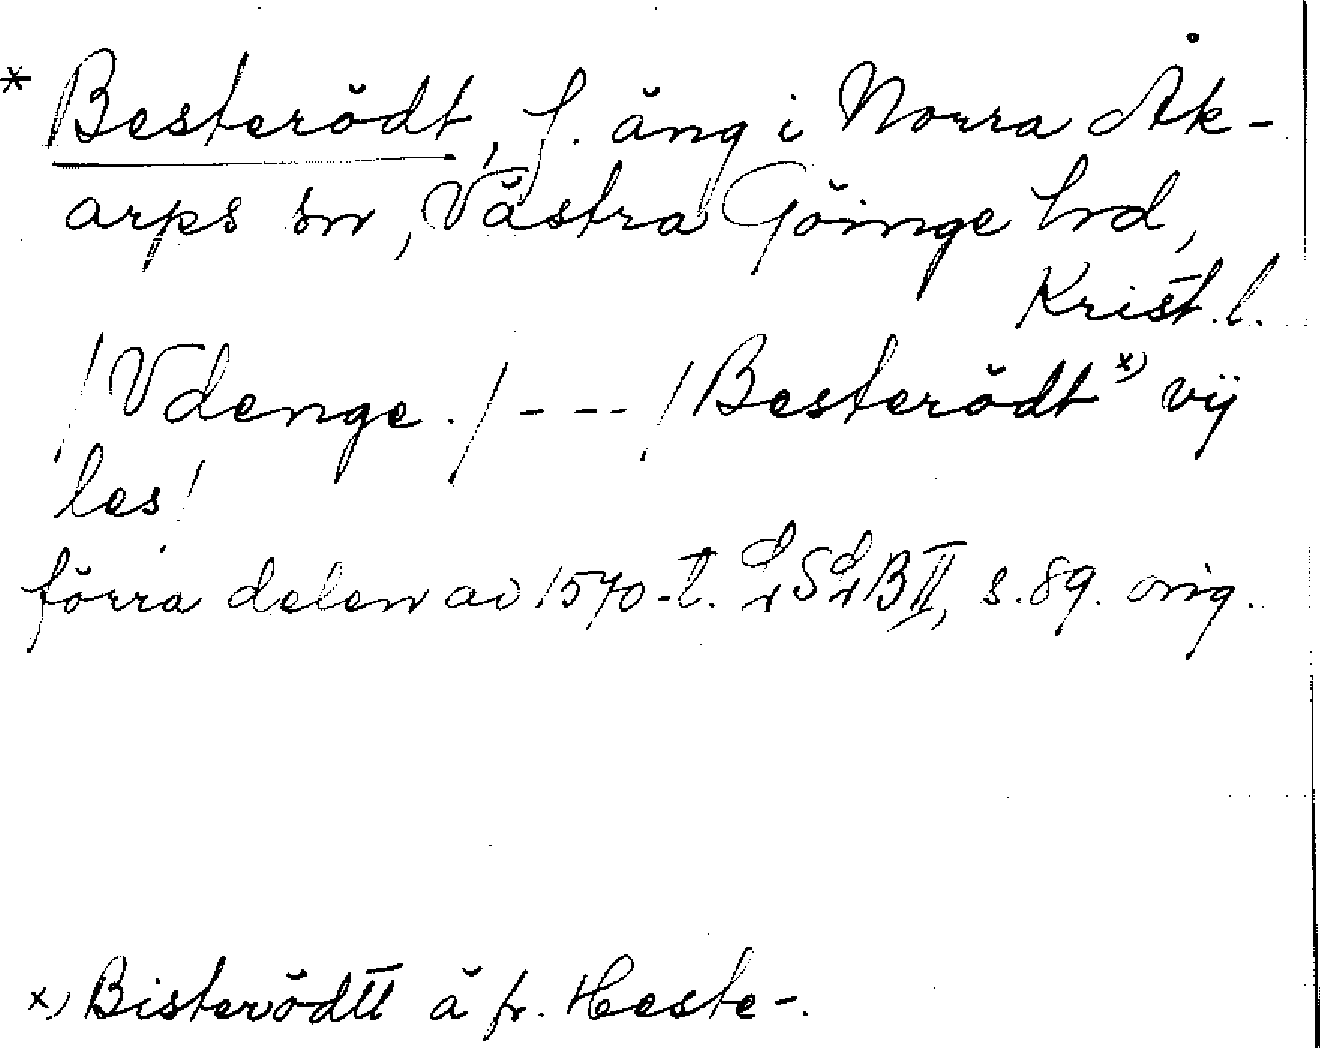 * Besterödt, f. äng i Norra Åk-
arps sn, Västra Göinge hd,
Krist. l.
/Vdenge./ - - - /Besterödt x) vij
les/
förra delen av 1570-t. LSLB II, s. 89. orig.
x) Bisterödtt ä fr. Heste-.